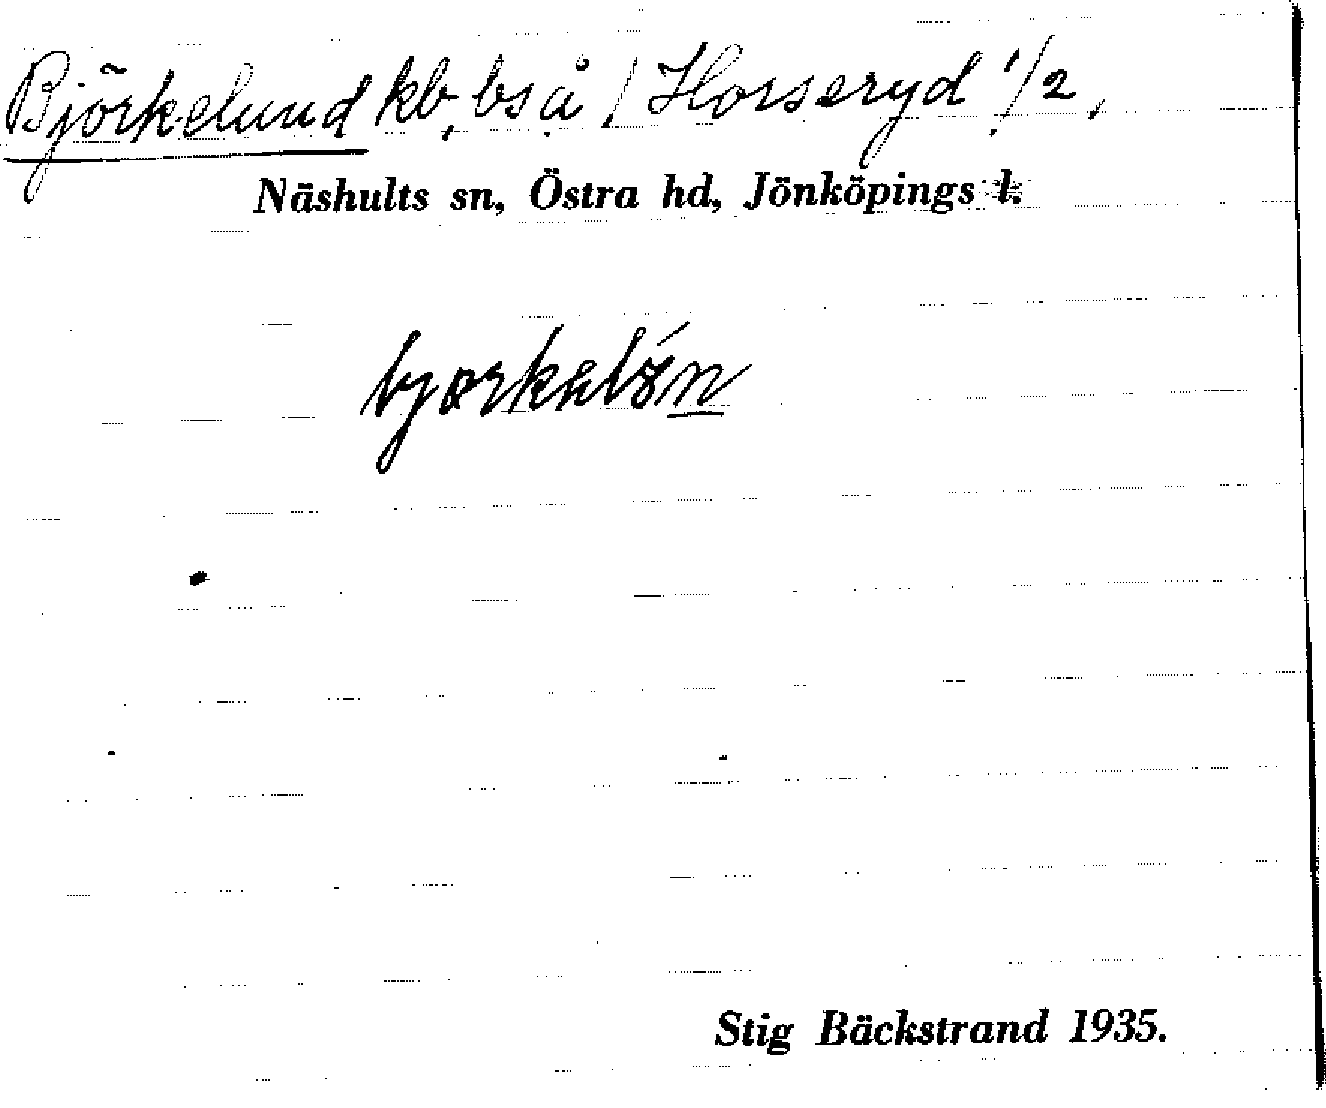 Björkelund kb, bs å / Horseryd 1/2,
Näshults sn, Östra hd, Jönköpings l.
Stig Bäckstrand 1935.